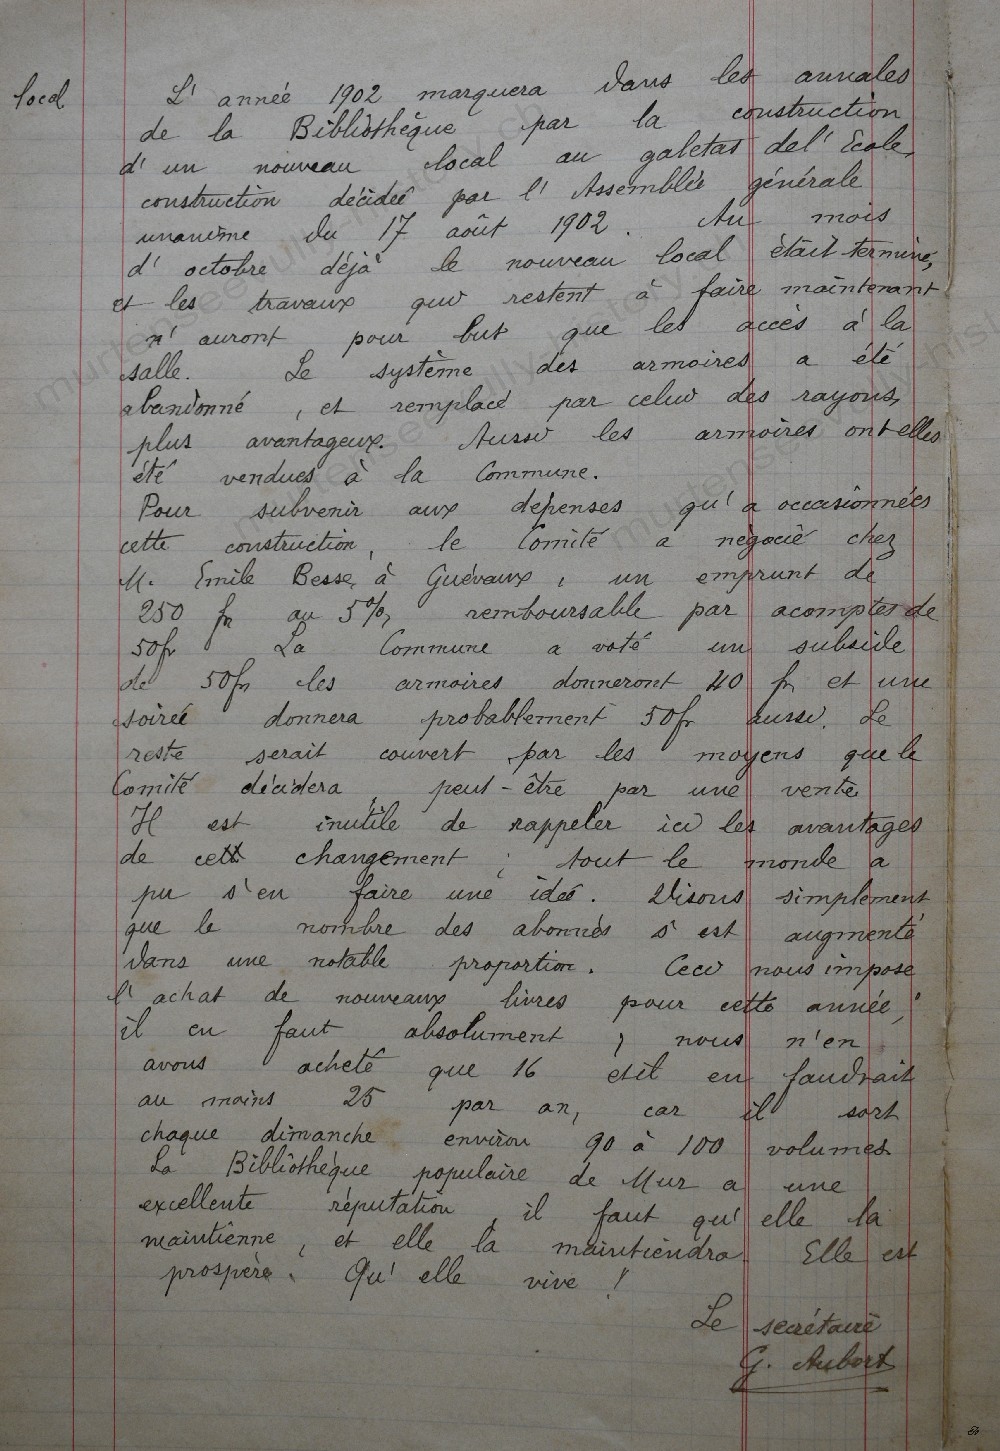 local
L'année 1902 marquera dans les annales
de la Bibliothèque par la construction
d'un nouveau local au galetas de l'Ecole,
construction décidée par l'Assemblée générale
unanime du 17 août 1902. Au mois
d'octobre déjà le nouveau local était terminé,
et les travaux qui restent à faire maintenant
n'auront pour but que les accès à la
salle. Le système des armoires a été
abandonné, et remplacé par celui des rayons,
plus avantageux. Aussi les armoires ont elles
été vendues à la Commune.
Pour subvenir aux dépenses qu'a occasionnées
cette construction, le Comité a négocié chez
M. Emile Besse, à Guévaux, un emprunt de
250 fr au 5%, remboursable par acomptes de
50fr La Commune a voté un subside
de 50fr les armoires donneront 40 fr et une
soirée donnera probablement 50fr aussi. Le
reste serait couvert par les moyens que le
Comité décidera, peut-être par une vente
Il est inutile de rappeler ici les avantages
de cett changement; tout le monde a
pu s'en faire une idée. Disons simplement
que le nombre des abonnés s'est augmenté
dans une notable proportion. Ceci nous impose
l'achat de nouveaux livres pour cette année;
il en faut absolument, nous n'en
avons acheté que 16 et il en faudrait
au moins 25 par an, car il sort
chaque dimanche environ 90 à 100 volumes.
La Bibliothèque populaire de Mur a une
excellente réputation, il faut qu'elle la
maintienne, et elle la maintiendra. Elle est
prospère. Qu'elle vive!
Le secrétaire
G. Aubort